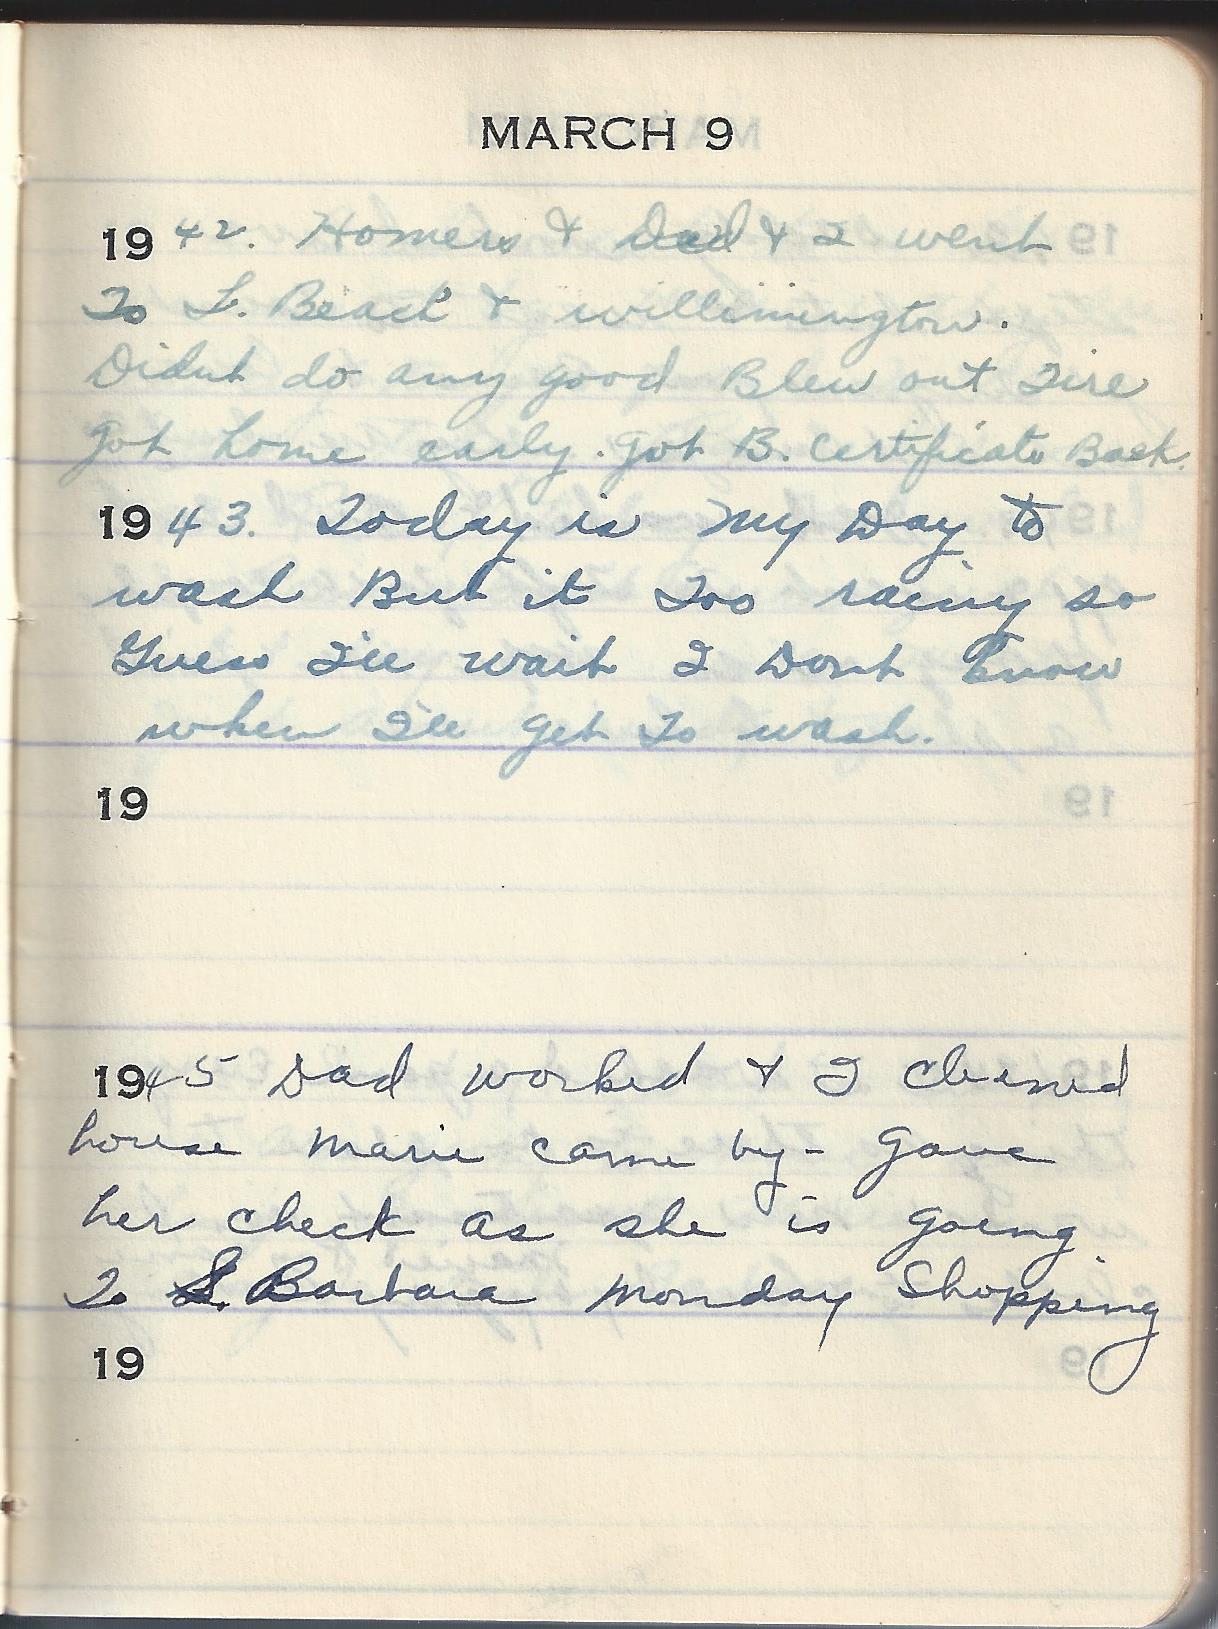 MARCH 9
1942. Homers & Dad & I went
To L. Beach & willimington.
Didnt do any good Blew out Tire
got home early. got B. Certificate Back.
1943. Today is my Day to
wash But it Too rainy so
Guess I'll wait I Dont know
when I'll get To wash.
19
1945 Dad worked & I cleaned
house Marie came by - gave
her check as she is going
To S. Barbara Monday Shopping
19